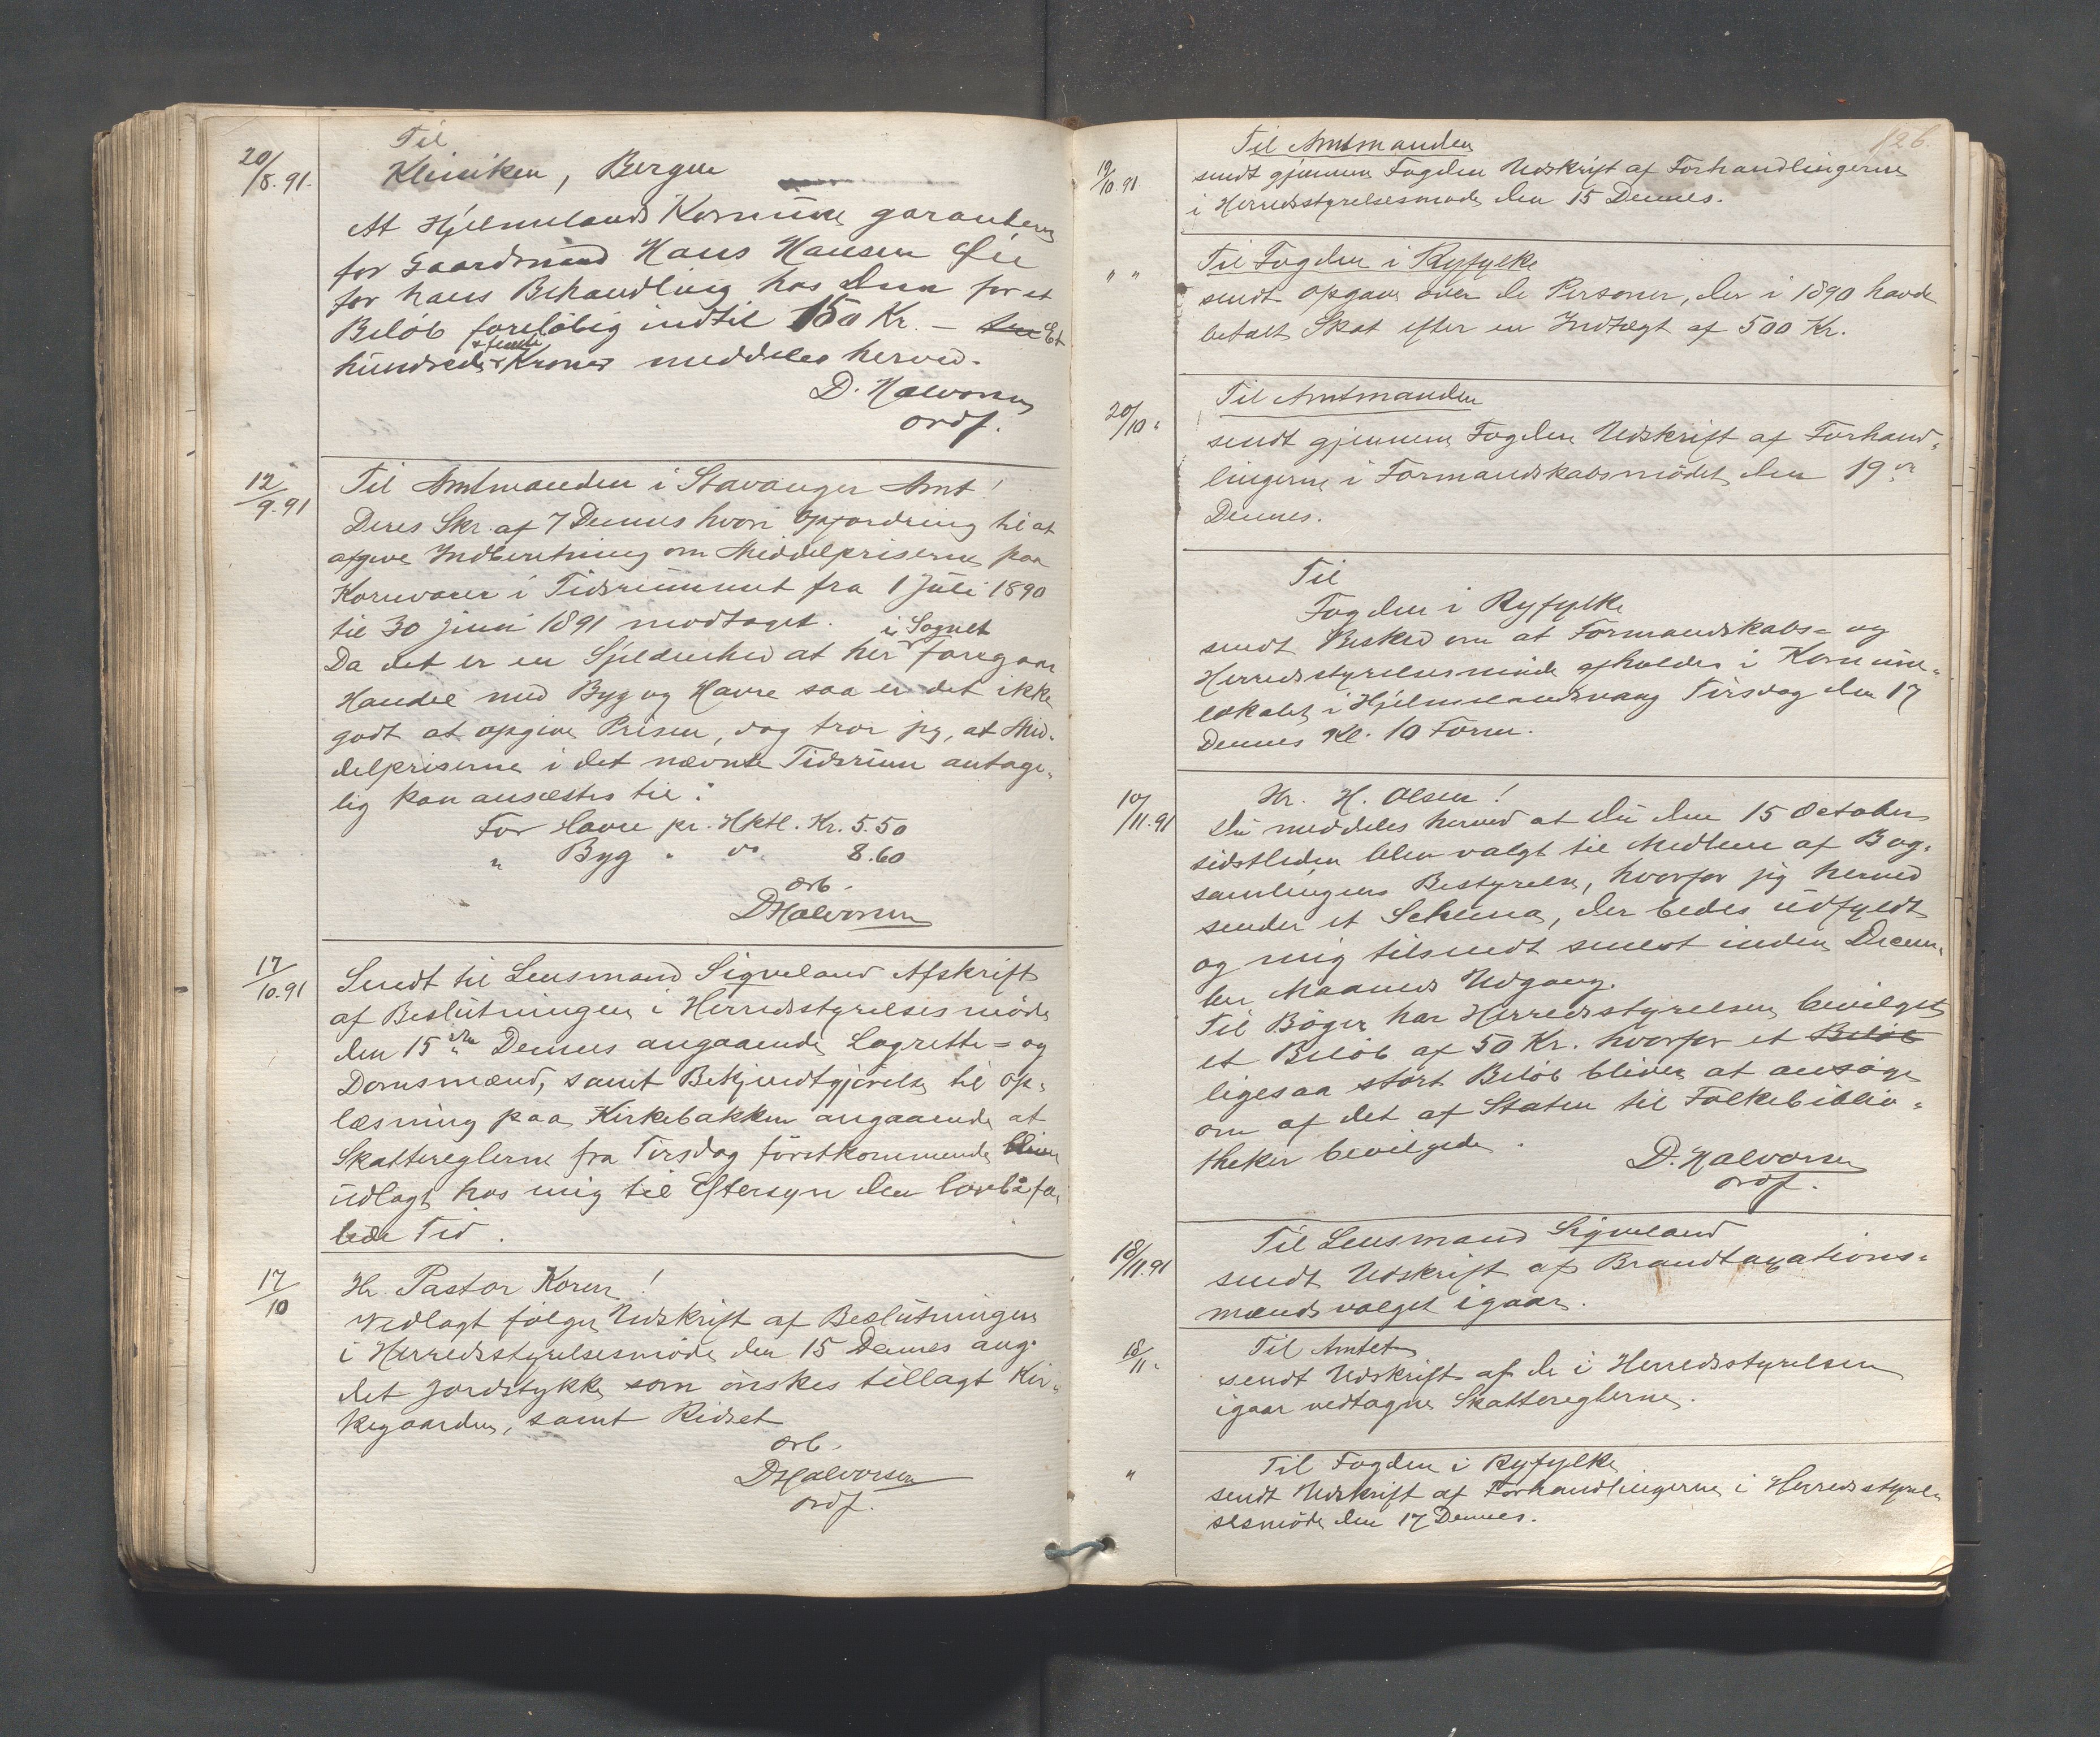 20/8.91.
Til
Kliniken, Bergen
At Hjelmelands Kommune garanterer
for Gaardmand Hans Hansen Øie
for hans Behandling hos Dem for et
Beløb foreløbig indtil 150 Kr. – Et
hundrede & femti Kroner meddeles herved.
D. Halvorsen
ordf.
12/9.91
Til Amtmanden i Stavanger Amt!
Deres Skr. af 7 Dennes hvori Opfordring til at
afgive Indberetning om Middelpriserne paa
Kornvarer i Tidsrummet fra 1 Juli 1890
til 30 Juni 1891 modtaget.
Da det er en Sjeldenhed at her i Sognet foregaar
Handel med Byg og Havre saa er det ikke
godt at opgive Prisen, dog tror jeg, at Mid-
delpriserne i det nævnte Tidsrum antage-
lig kan ansættes til:
For Havre pr. Hktl. Kr. 5.50
" Byg " " 8.60
ærb.
DHalvorsen
17/10.91
Sendt til Lensmand Sigveland Afskrift
af Beslutningen i Herredsstyrelsesmøde
den 15de Dennes angaaende Lagrette= og
Domsmænd, samt Bekjendtgjørelse til Op-
læsning paa Kirkebakken angaaende at
Skattereglerne fra Tirsdag førstkommende bliver
udlagt hos mig til Eftersyn den lovbefa-
lede Tid.
17/10
Hr. Pastor Koren!
Vedlagt følger Udskrift af Beslutningen
i Herredsstyrelsesmøde den 15 Dennes ang.
det Jordstykke som ønskes tillagt Kir-
kegaarden, samt Ridset
ærb.
DHalvorsen
ordf.
126.
19/10 91
Til Amtmanden
sendt gjennem Fogden Udskrift af Forhandlingerne
i Herredsstyrelsesmøde den 15 Dennes.
" "
Til Fogden i Ryfylke
sendt Opgave over de Personer, der i 1890 havde
betalt Skat efter en Indtægt af 500 Kr.
20/10 "
Til Amtmanden
sendt gjennem Fogden Udskrift af Forhand-
lingerne i Formandskabsmødet den 19de
Dennes.
Til
Fogden i Ryfylke
sendt Besked om at Formandskabs= og
Herredsstyrelsesmøde afholdes i Kommune-
lokalet i Hjelmelandsvaag Tirsdag den 17
Dennes Kl. 10 Form.
10/11.91
Hr. H. Olsen!
Du meddeles herved at Du den 15 October
sidstleden blev valgt til Medlem af Bog-
samlingens Bestyrelse, hvorfor jeg herved
sender et Schema, der bedes udfyldt
og mig tilsendt senest inden Decem-
ber Maaneds Udgang.
Til Bøger har Herredsstyrelsen bevilget
et Beløb af 50 Kr. hvorfor et Beløb
ligesaa stort Beløb bliver at ansøge
om af det af Staten til Folkebiblio-
theker bevilgede.
D. Halvorsen
ordf.
18/11.91
Til Lensmand Sigveland
sendt Udskrift af Brandtaxations-
mændsvalget igaar.
18/11 "
Til Amtet
sendt Udskrift af de i Herredsstyrelsen
igaar vedtagne Skatteregler.
"
Til Fogden i Ryfylke
sendt Udskrift af Forhandlingerne i Herredsstyrel-
sesmøde den 17 Dennes.